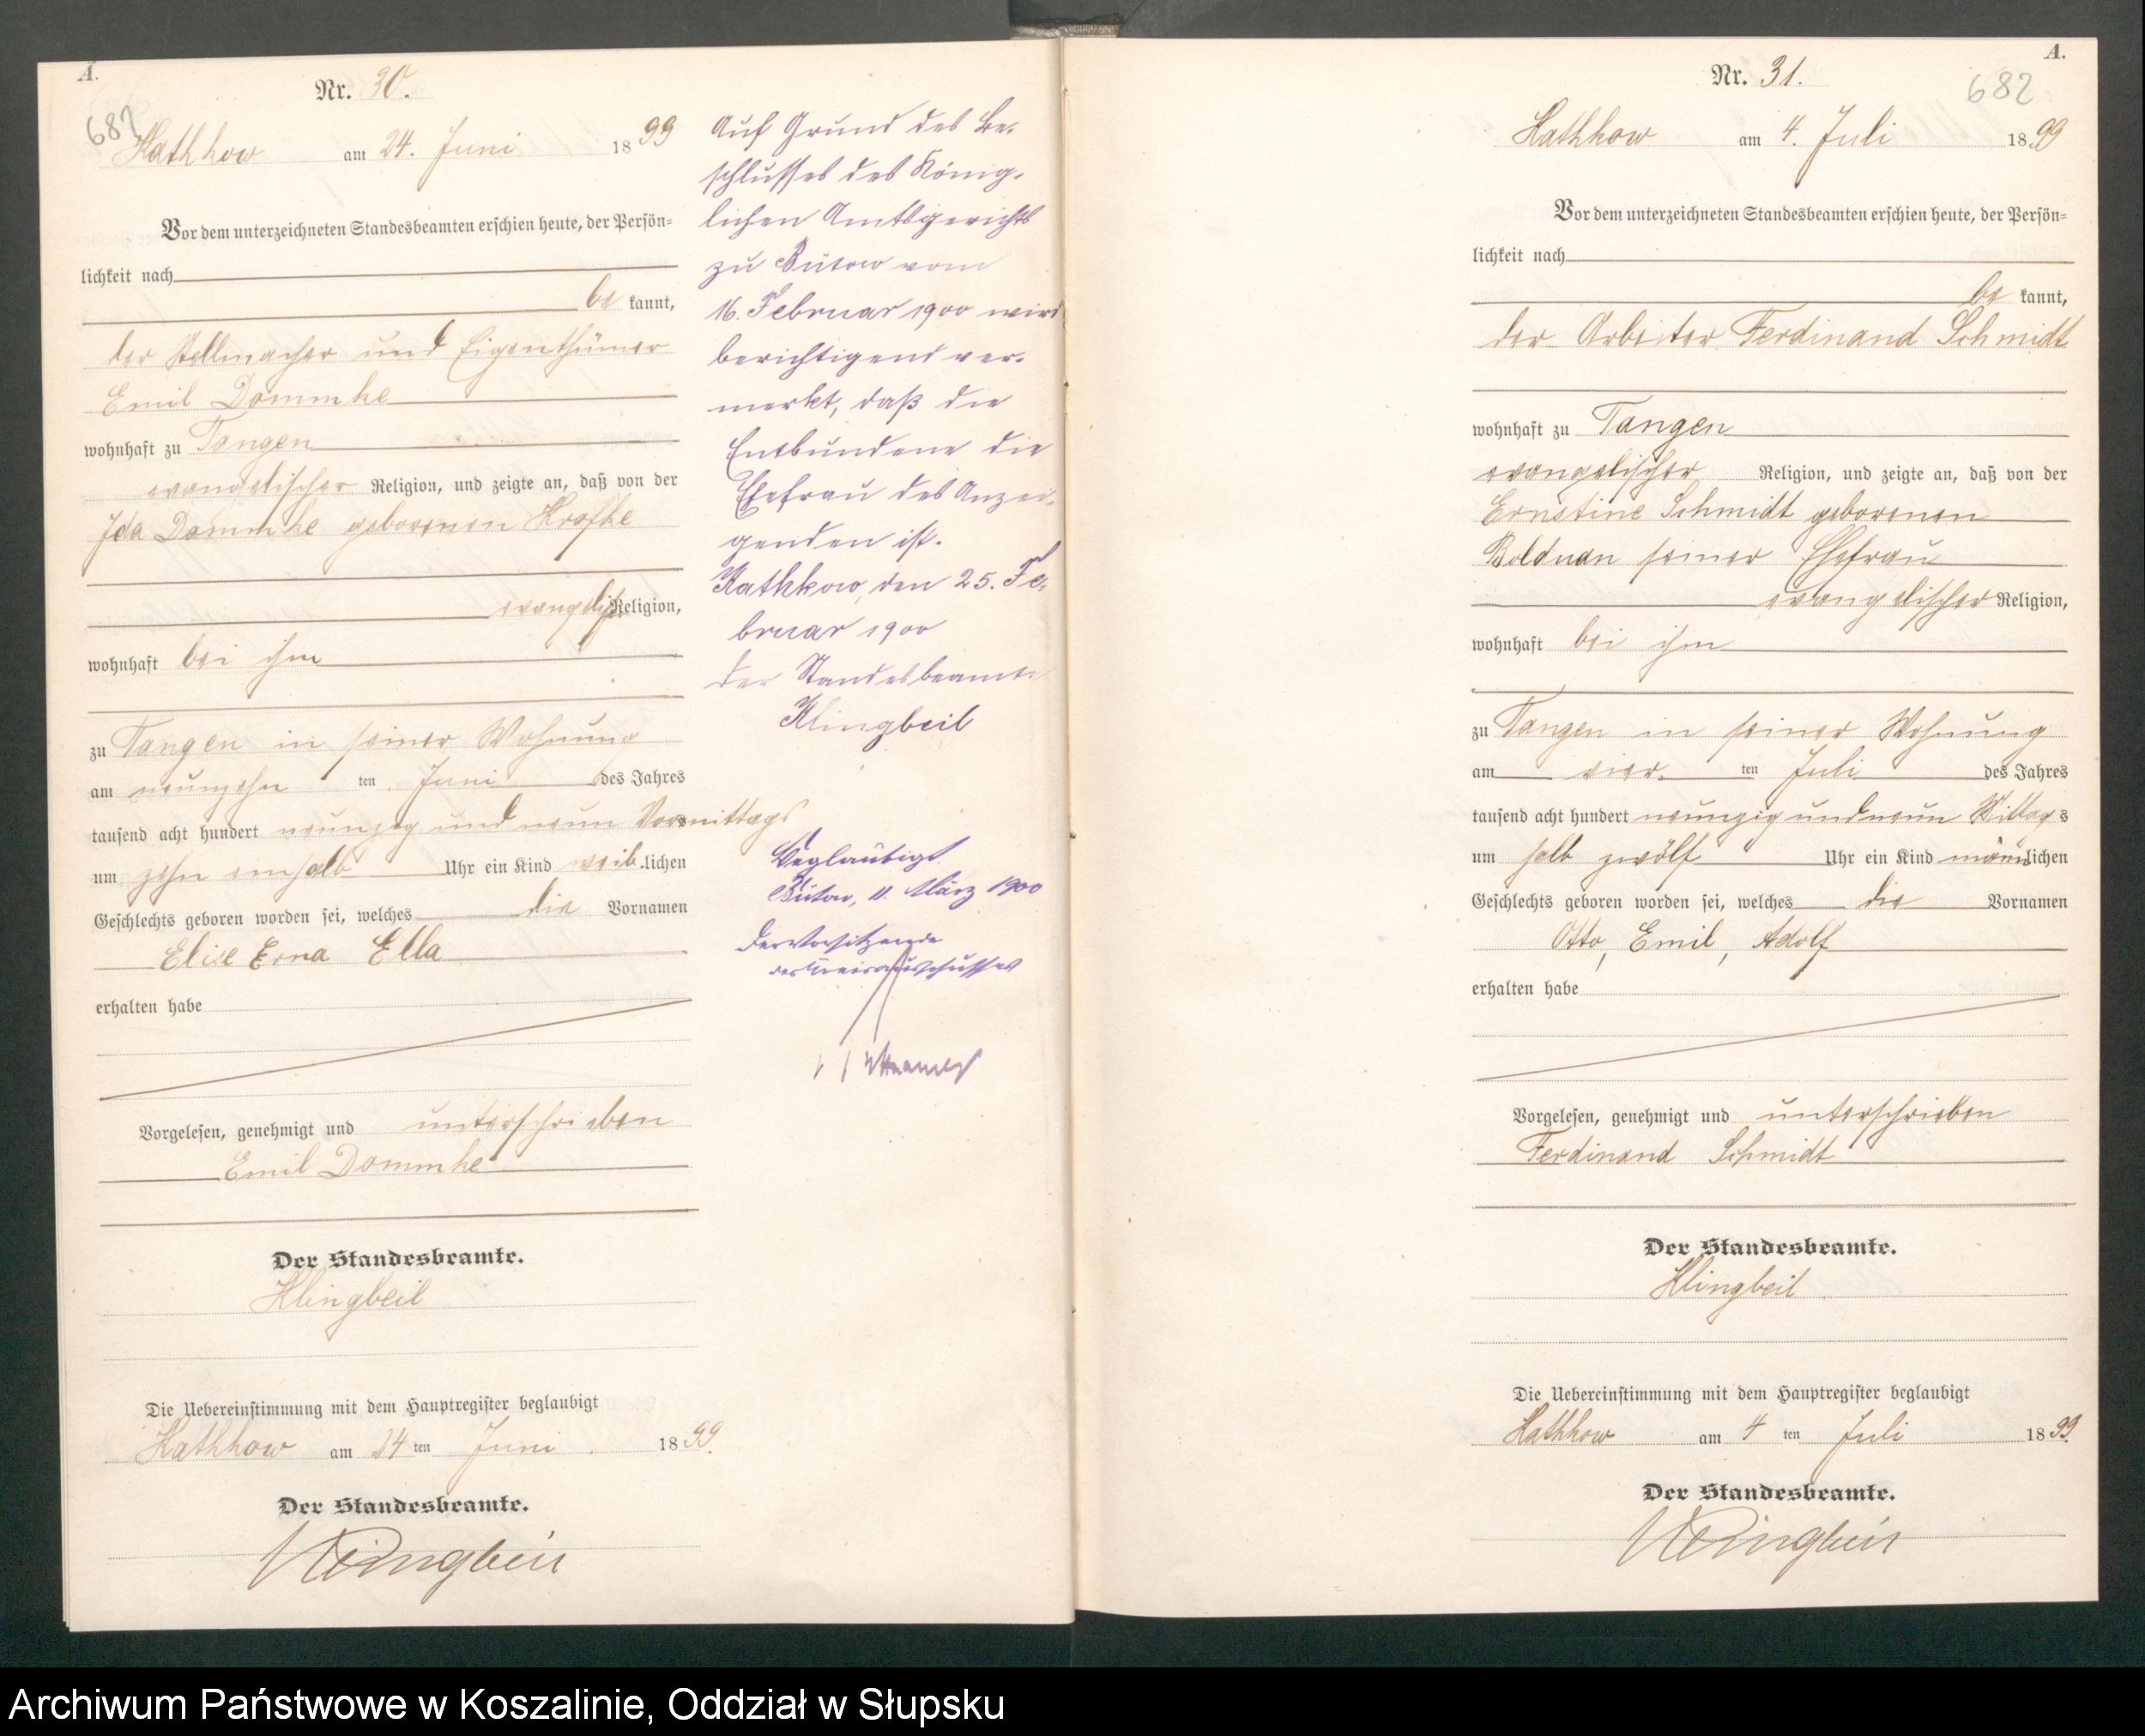 A.
Nr. 30.
682
Kathkow am 24. Juni 1899
Vor dem unterzeichneten Standesbeamten erschien heute, der Persön=
lichkeit nach
be kannt,
der Stellmacher und Eigenthümer
Emil Dommke
wohnhaft zu Tangen
evangelischer Religion, und zeigte an, daß von der
Ida Dommke geborenen
evangelischer Religion,
wohnhaft bei ihm
zu Tangen in seiner Wohnung
am neunzehn ten Juni des Jahres
tausend acht hundert neunzig und neun Vormittags
um zehn einhalb Uhr ein Kind weib lichen
Geschlechts geboren worden sei, welches die Vornamen
Elise Erna Ella
erhalten habe
Vorgelesen, genehmigt und unterschrieben
Emil Dommke
Der Standesbeamte.
Klingbeil
Die Uebereinstimmung mit dem Hauptregister beglaubigt
Kathkow am 24 ten Juni 1899.
Der Standesbeamte.
Klingbeil
Auf Grund des Be-
schlusses des König-
lichen Amtsgerichts
zu Bütow vom
16. Februar 1900 wird
berichtigend ver-
merkt, daß die
Entbundene die
Ehefrau des Anzei-
genden ist.
Kathkow, den 25. Fe-
bruar 1900
der Standesbeamte
Klingbeil
Beglaubigt
Bütow, 11. März 1900
Der Vorsitzende
des Kreisausschusses
A.
Nr. 31.
682
Kathkow am 4. Juli 1899
Vor dem unterzeichneten Standesbeamten erschien heute, der Persön=
lichkeit nach
be kannt,
der Arbeiter Ferdinand Schmidt
wohnhaft zu Tangen
evangelischer Religion, und zeigte an, daß von der
Ernstine Schmidt geborenen
Boldnan seiner Ehefrau
evangelischer Religion,
wohnhaft bei ihm
zu Tangen in seiner Wohnung
am vier ten Juli des Jahres
tausend acht hundert neunzig und neun Mittags
um halb zwölf Uhr ein Kind männlichen
Geschlechts geboren worden sei, welches die Vornamen
Otto, Emil, Adolf
erhalten habe
Vorgelesen, genehmigt und unterschrieben
Ferdinand Schmidt
Der Standesbeamte.
Klingbeil
Die Uebereinstimmung mit dem Hauptregister beglaubigt
Kathkow am 4 ten Juli 1899.
Der Standesbeamte.
Klingbeil
Archiwum Państwowe w Koszalinie, Oddział w Słupsku